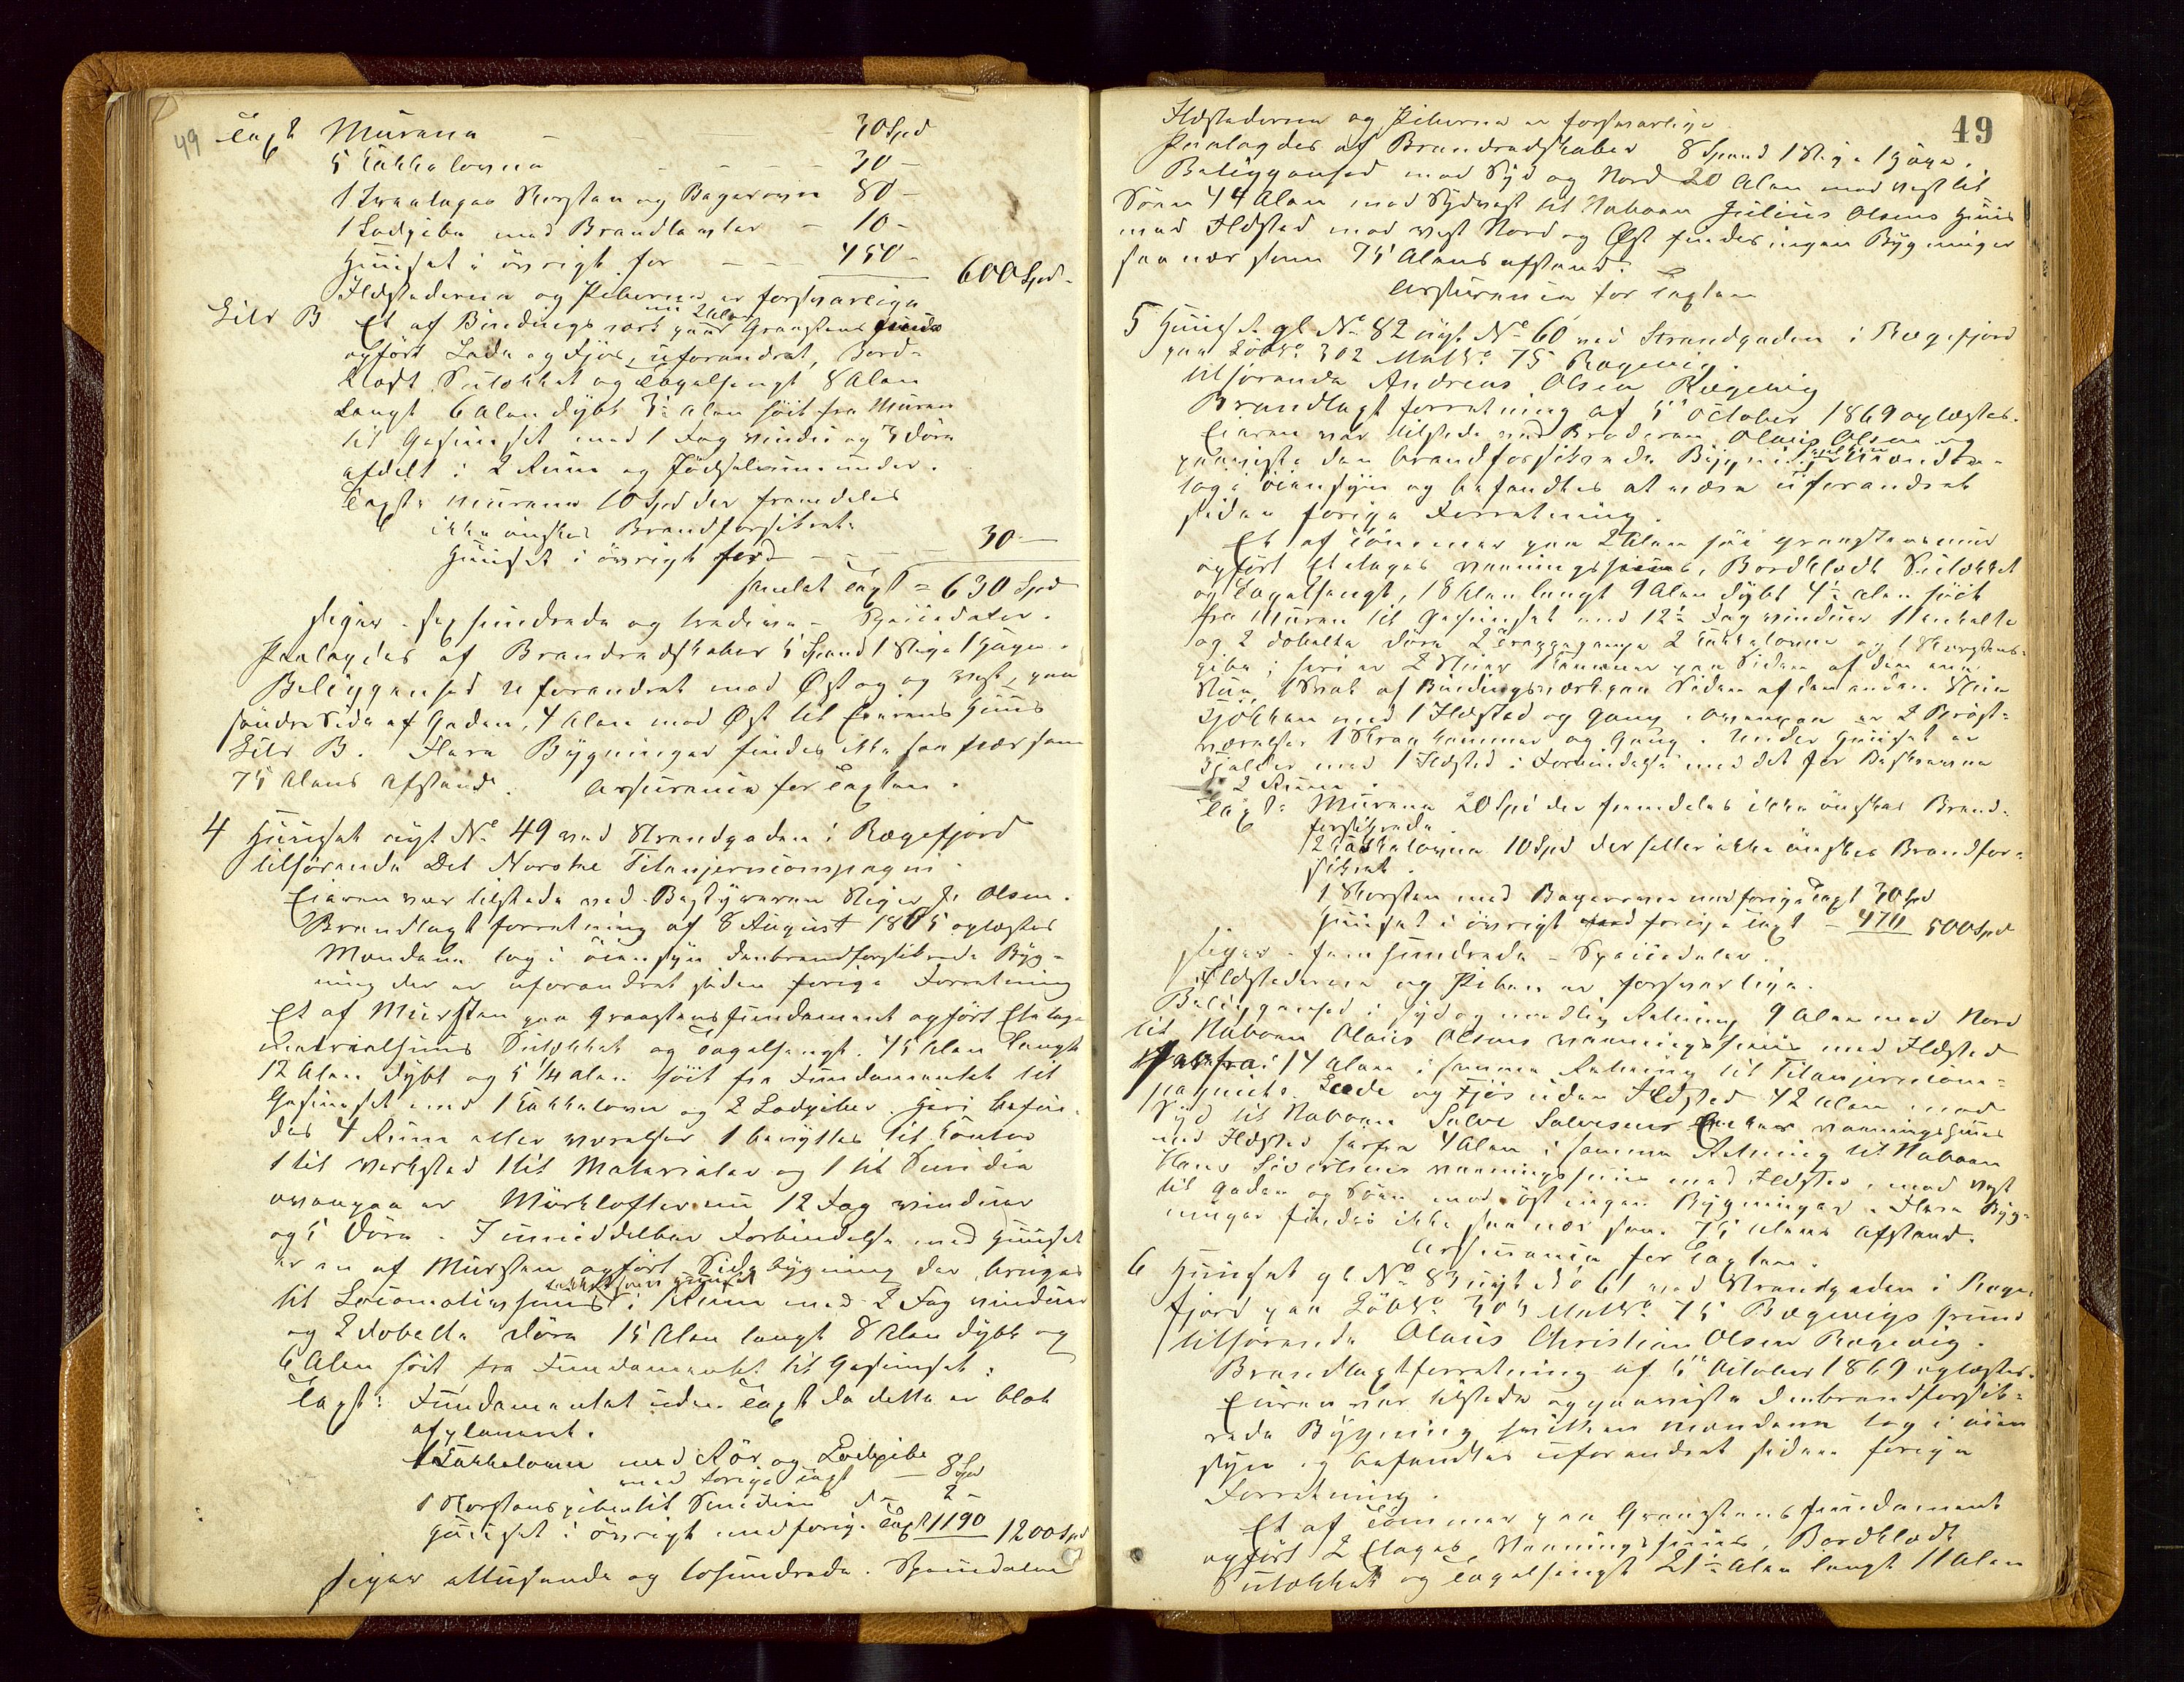 49 Taxt Murene - - - 30 Spd
5 Kakkelovne - - - 30 -
1 Toetages Skorsten og Bagerovn 80 -
1 Lodpibe med Brandtavler - 10 -
Huuset i övrigt for - - - 450 - 600 Spd.
Ildstederne og Piberne er forsvarlige
Litr B Et af Bindingsværk paa Graastens
nu 2 Alen
opført Lade og Fjøs, uforandret, Bord-
klædt Sutækket og Tagelhængt 8 Alen
langt 6 Alen dybt 3½ Alen höit fra Muren
til Gesimset med 1 Fag vindu og 3 döre
afdelt i 2 Rum og Gjödselrum under.
Taxt: Murene 10 Spd der fremdeles
ikke önskes Brandforsikret
Huuset i övrigt for - - - 30 -
samlet Taxt = 630 Spd
siger - sexhundrede og tredive - Speciedaler.
Paalagdes af Brandredskaber 5 Spand 1 Stige 1 Hage.
Beliggenhed uforandret mod Øst og vest, paa
söndre Side af Gaden, 4 Alen mod Øst til Eierens Huus
Litr B. Flere Bygninger findes ikke saa nær som
75 Alens Afstand. Assurance for Taxten.
4 Huuset nyt No 49 ved Strandgaden i Rægefjord
tilhörende Det Norske Titanjerncompagni.
Eieren var tilstede ved Bestyreren Stiger J. Olsen.
Brandtaxtforretning af 8 August 1865 oplæstes
Mændene tog i öiensyn den brandforsikrede Byg-
ning der er uforandret siden forige Forretning
Et af Mursten paa Graastens Fundament opfört Etetages
Materialhuus Sutækket og Tagelhængt. 45 Alen langt
12 Alen dybt og 5 1/4 Alen höit fra Fundamentet til
Gesimset med 1 Kakkelovn og 2 Lodpiber. Heri befin-
des 4 Rum eller værelser 1 benyttes til Contor
1 til Verksted 1 til Materialer og 1 til Smidie
ovenpaa er Mörklofter nu 12 Fag vinduer
og 5 Döre. I umiddelbar Forbindelse med Huuset
er en af Mursten opfört Sidebygning der bruges
til Locomotivhuus i 1 Rum med 2 Fag vinduer
og 2 dobelte döre 15 Alen langt 8 Alen dybt og
6 Alen höit fra Fundamentet til Gesimset:
Taxt: Fundamentet uden Taxt da dette er blot
afplaneret.
1 Kakkelovn med Rör og Lodpibe
med forige taxt - 8 Spd
1 Skorstenspibe til Smidien do - 2 -
Huuset i övrigt med forige Taxt 1190 1200 Spd
siger ettusende og tohundrede Speciedaler
49
Ildstederne og Piberne er forsvarlige
Paalagdes af Brandredskaber 8 Spand 1 Stige 1 Hage.
Beliggenhed mod Syd og Nord 20 Alen mod vest til
Söen 44 Alen mod Sydvest til Naboen Julius Olsens Huus
med Ildsted mod vest Nord og Øst findes ingen Bygninger
saa nær som 75 Alens afstand.
Assurance for Taxten
5 Huuset gl No 82 nyt No 60 ved Strandgaden i Rægefjord
paa LöbNo 302 MatNo 75 Rægevig.
tilhörende Andreas Olsen Rægevig
Brandtaxtforretning af 5te October 1869 oplæstes.
Eieren var tilstede ved Broderen Olaus Olsen og
paaviste den brandforsikrede Bygning som Mændene
tog i öiensyn og befandtes at være uforandret
siden forige Forretning.
Et af Tömmer paa 2 Alen höi graastensmuur
opfört Etetages vaaningshuus, Bordklædt Sutækket
og Tagelhængt, 18 Alen langt 9 Alen dybt 4½ Alen höit
fra Muren til Gesimset med 12½ Fag vinduer 1 enkelte
og 2 dobelte döre 2 Trappegange 2 Kakkelovne og 1 Skorstens-
pibe; heri er 2 Stuer 1 Kammer paa Siden af den ene
Stue, 1 Sval af Bindingsværk paa Siden af den anden Stue
Kjökken med 1 Ildsted og Gang. ovenpaa er 2 Bröst-
værelser 1 Skraakammer og Gang. Under Huuset er
Kjelder med 1 Ildsted i Forbindelse med det for Beskrevne
2 Rum.
Taxt: Murene 20 Spd der fremdeles ikke önskes Brand-
forsikrede
2 Kakkelovne 10 Spd der heller ikke önskes Brandfor-
sikret.
1 Skorsten med Bagerovn med forige Taxt 30 Spd
Huuset i övrigt forige Taxt - 470 500 Spd
siger - femhundrede - Speciedaler.
Ildstederne og Piben er forsvarlige.
Beliggenhed i syd og nordlig Retning 9 Alen mod Nord
til Naboen Olaus Olsens vaaningshuus med Ildsted
herfra 14 Alen i samme Retning til Titanjerncom-
pagniets Lade og Fjös uden Ildsted 42 Alen mod
Syd til Naboen Salve Salvesens Enkes vaaningshuus
med Ildsted herfra 4 Alen i samme Retning til Naboen
Hans Sivertsens vaaningshuus med Ildsted, mod vest
til Gaden og Söen mod öst ingen Bygninger. Flere Byg-
ninger findes ikke saa nær som 75 Alens Afstand.
Assurance for Taxten.
6 Huuset gl No 83 nyt No 61 ved Strandgaden i Ræge-
fjord paa LöbNo 303 MatNo 75 Rægevigs Grund
tilhörende Olaus Christian Olsen Rægevig.
Brandtaxtforretning af 5te October 1869 oplæstes.
Eieren var tilstede og paaviste den brandforsik-
rede Bygning hvilken Mændene tog i öien
syn og befandtes uforandret siden forige
Forretning.
Et af Tömmer paa Graastens fundament
opfört 2 Etages Vaaningshuus, Bordklædt
Sutækket og Tagelhængt 21½ Alen langt 11 Alen